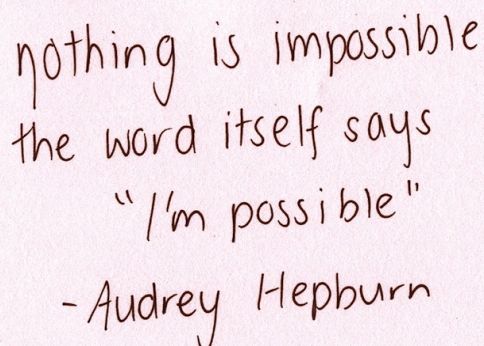 nothing is impossible
the word itself says
"I'm possible"
-Audrey Hepburn